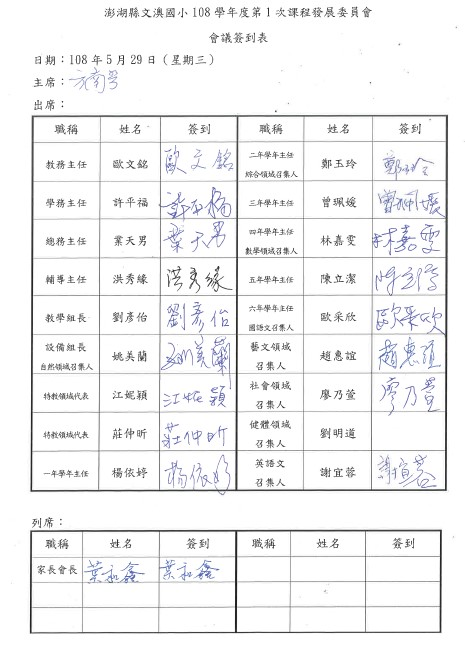 澎湖縣文澳國小 108 學年度第 1 次課程發展委員會
會議簽到表
日期：108 年 5 月 29 日（星期三）
主席：
出席：
職稱 姓名 簽到 職稱 姓名 簽到
教務主任 歐文銘 歐文銘 二年學年主任 綜合領域召集人 鄭玉玲 鄭玉玲
學務主任 許平福 許平福 三年學年主任 曾珮媛 曾珮媛
總務主任 葉天男 葉天男 四年學年主任 數學領域召集人 林嘉雯 林嘉雯
輔導主任 洪秀緣 洪秀緣 五年學年主任 陳立潔 陳立潔
教學組長 劉彥怡 劉彥怡 六年學年主任 國語文召集人 歐采欣 歐采欣
設備組長 自然領域召集人 姚美蘭 姚美蘭 藝文領域 召集人 趙惠誼 趙惠誼
特教領域代表 江妮穎 江妮穎 社會領域 召集人 廖乃萱 廖乃萱
特教領域代表 莊仲昕 莊仲昕 健體領域 召集人 劉明道
一年學年主任 楊依婷 楊依婷 英語文 召集人 謝宜蓉 謝宜蓉
列席：
職稱 姓名 簽到 職稱 姓名 簽到
家長會長 葉和鑫 葉和鑫